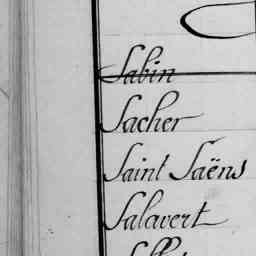 Sabin
Sacher
Saint Saëns
Salavert